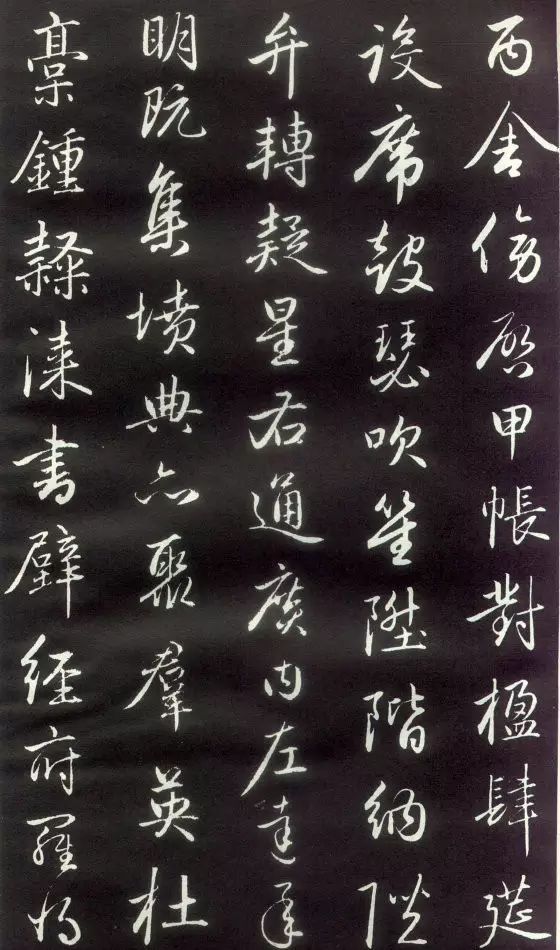 丙舍傍啟甲帳對楹肆筵
設席鼓瑟吹笙陞階納陛
弁轉疑星右通廣內左達承
明既集墳典亦聚羣英杜
稾鍾隸漆書壁經府羅將